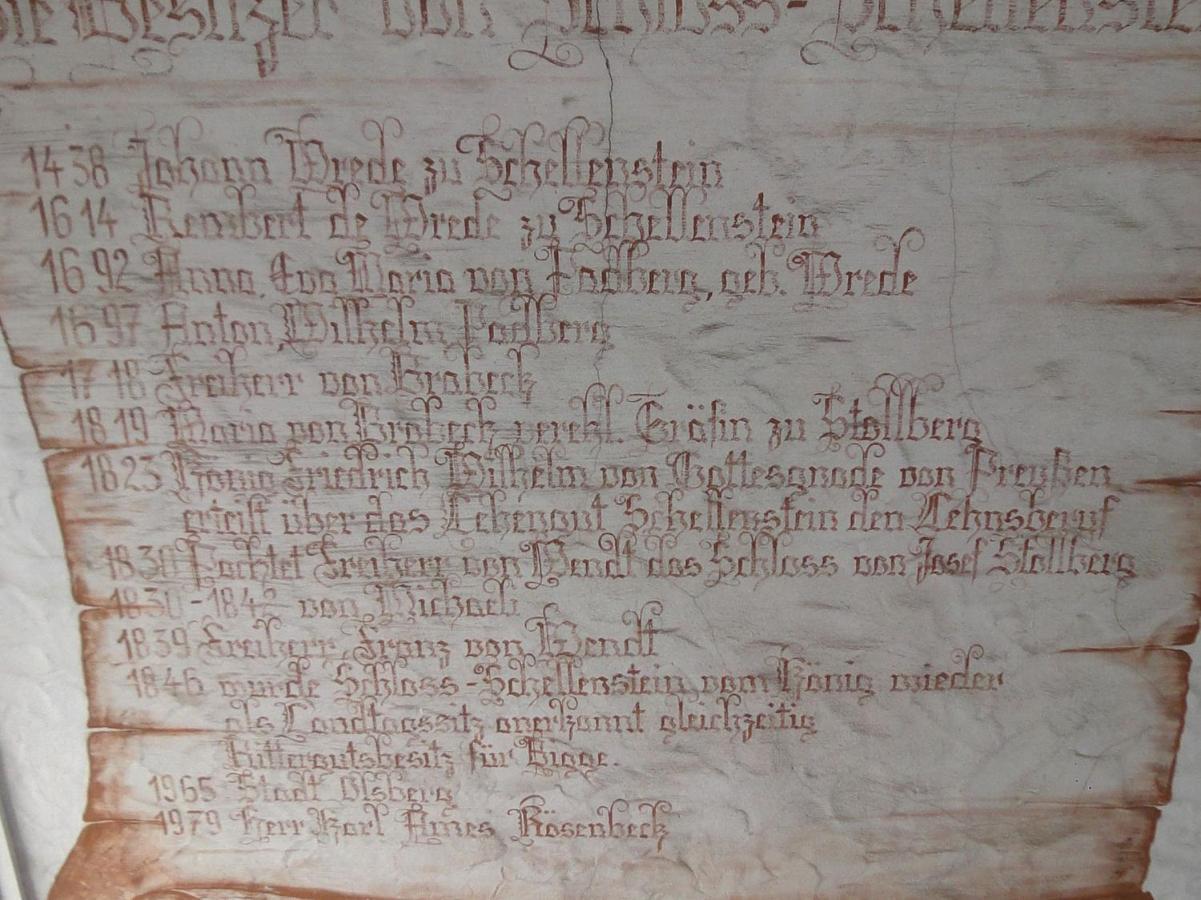 Die Besitzer von Schloss-Schellenstein
1438 Johann Wrede zu Schellenstein
1614 Rembert de Wrede zu Schellenstein
1692 Anna, Eva Maria von Padberg, geb. Wrede
1697 Anton, Wilhelm Padberg
1718 Freiherr von Brabeck
1819 Maria von Brabeck verehl. Gräfin zu Stollberg
1823 König Friedrich Wilhelm von Gottesgnade von Preußen
erteilt über das Lehengut Schellenstein den Lehnsberuf
1830 Pachtet Freiherr von Wendt das Schloss von Josef Stollberg
1830-1842 von Michaeli
1839 Freiherr, Franz von Wendt
1846 wurde Schloss-Schellenstein vom König wieder
als Landtagssitz anerkannt gleichzeitig
Rittergutsbesitz für Bigge.
1965 Stadt Olsberg
1979 Herr Karl Ames Rösenbeck